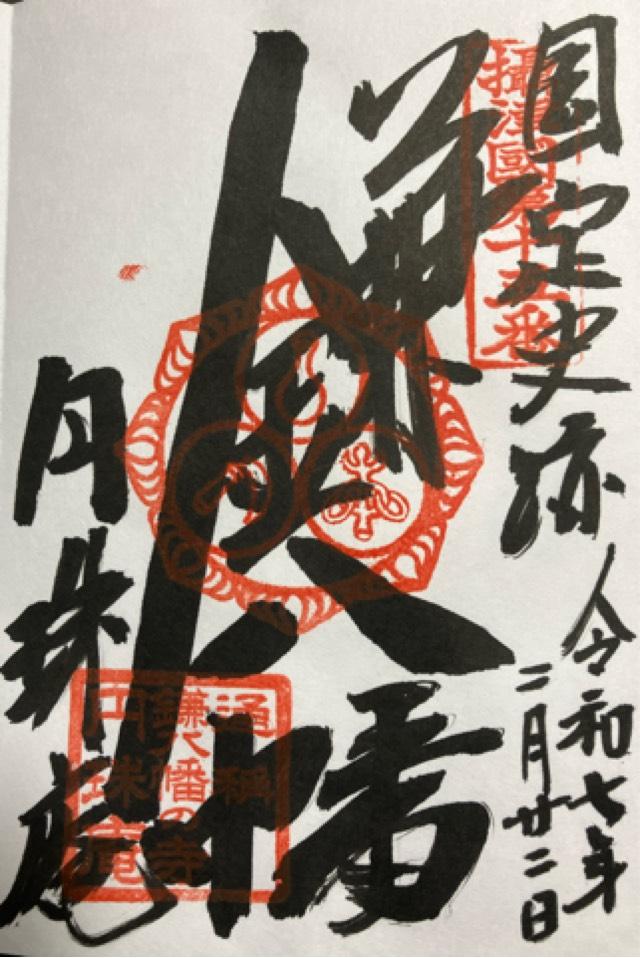 国定史跡
令和七年
二月廿二日
鎌八幡
円珠庵
攝津國第十三番
通稱
鎌八幡の寺
円珠庵